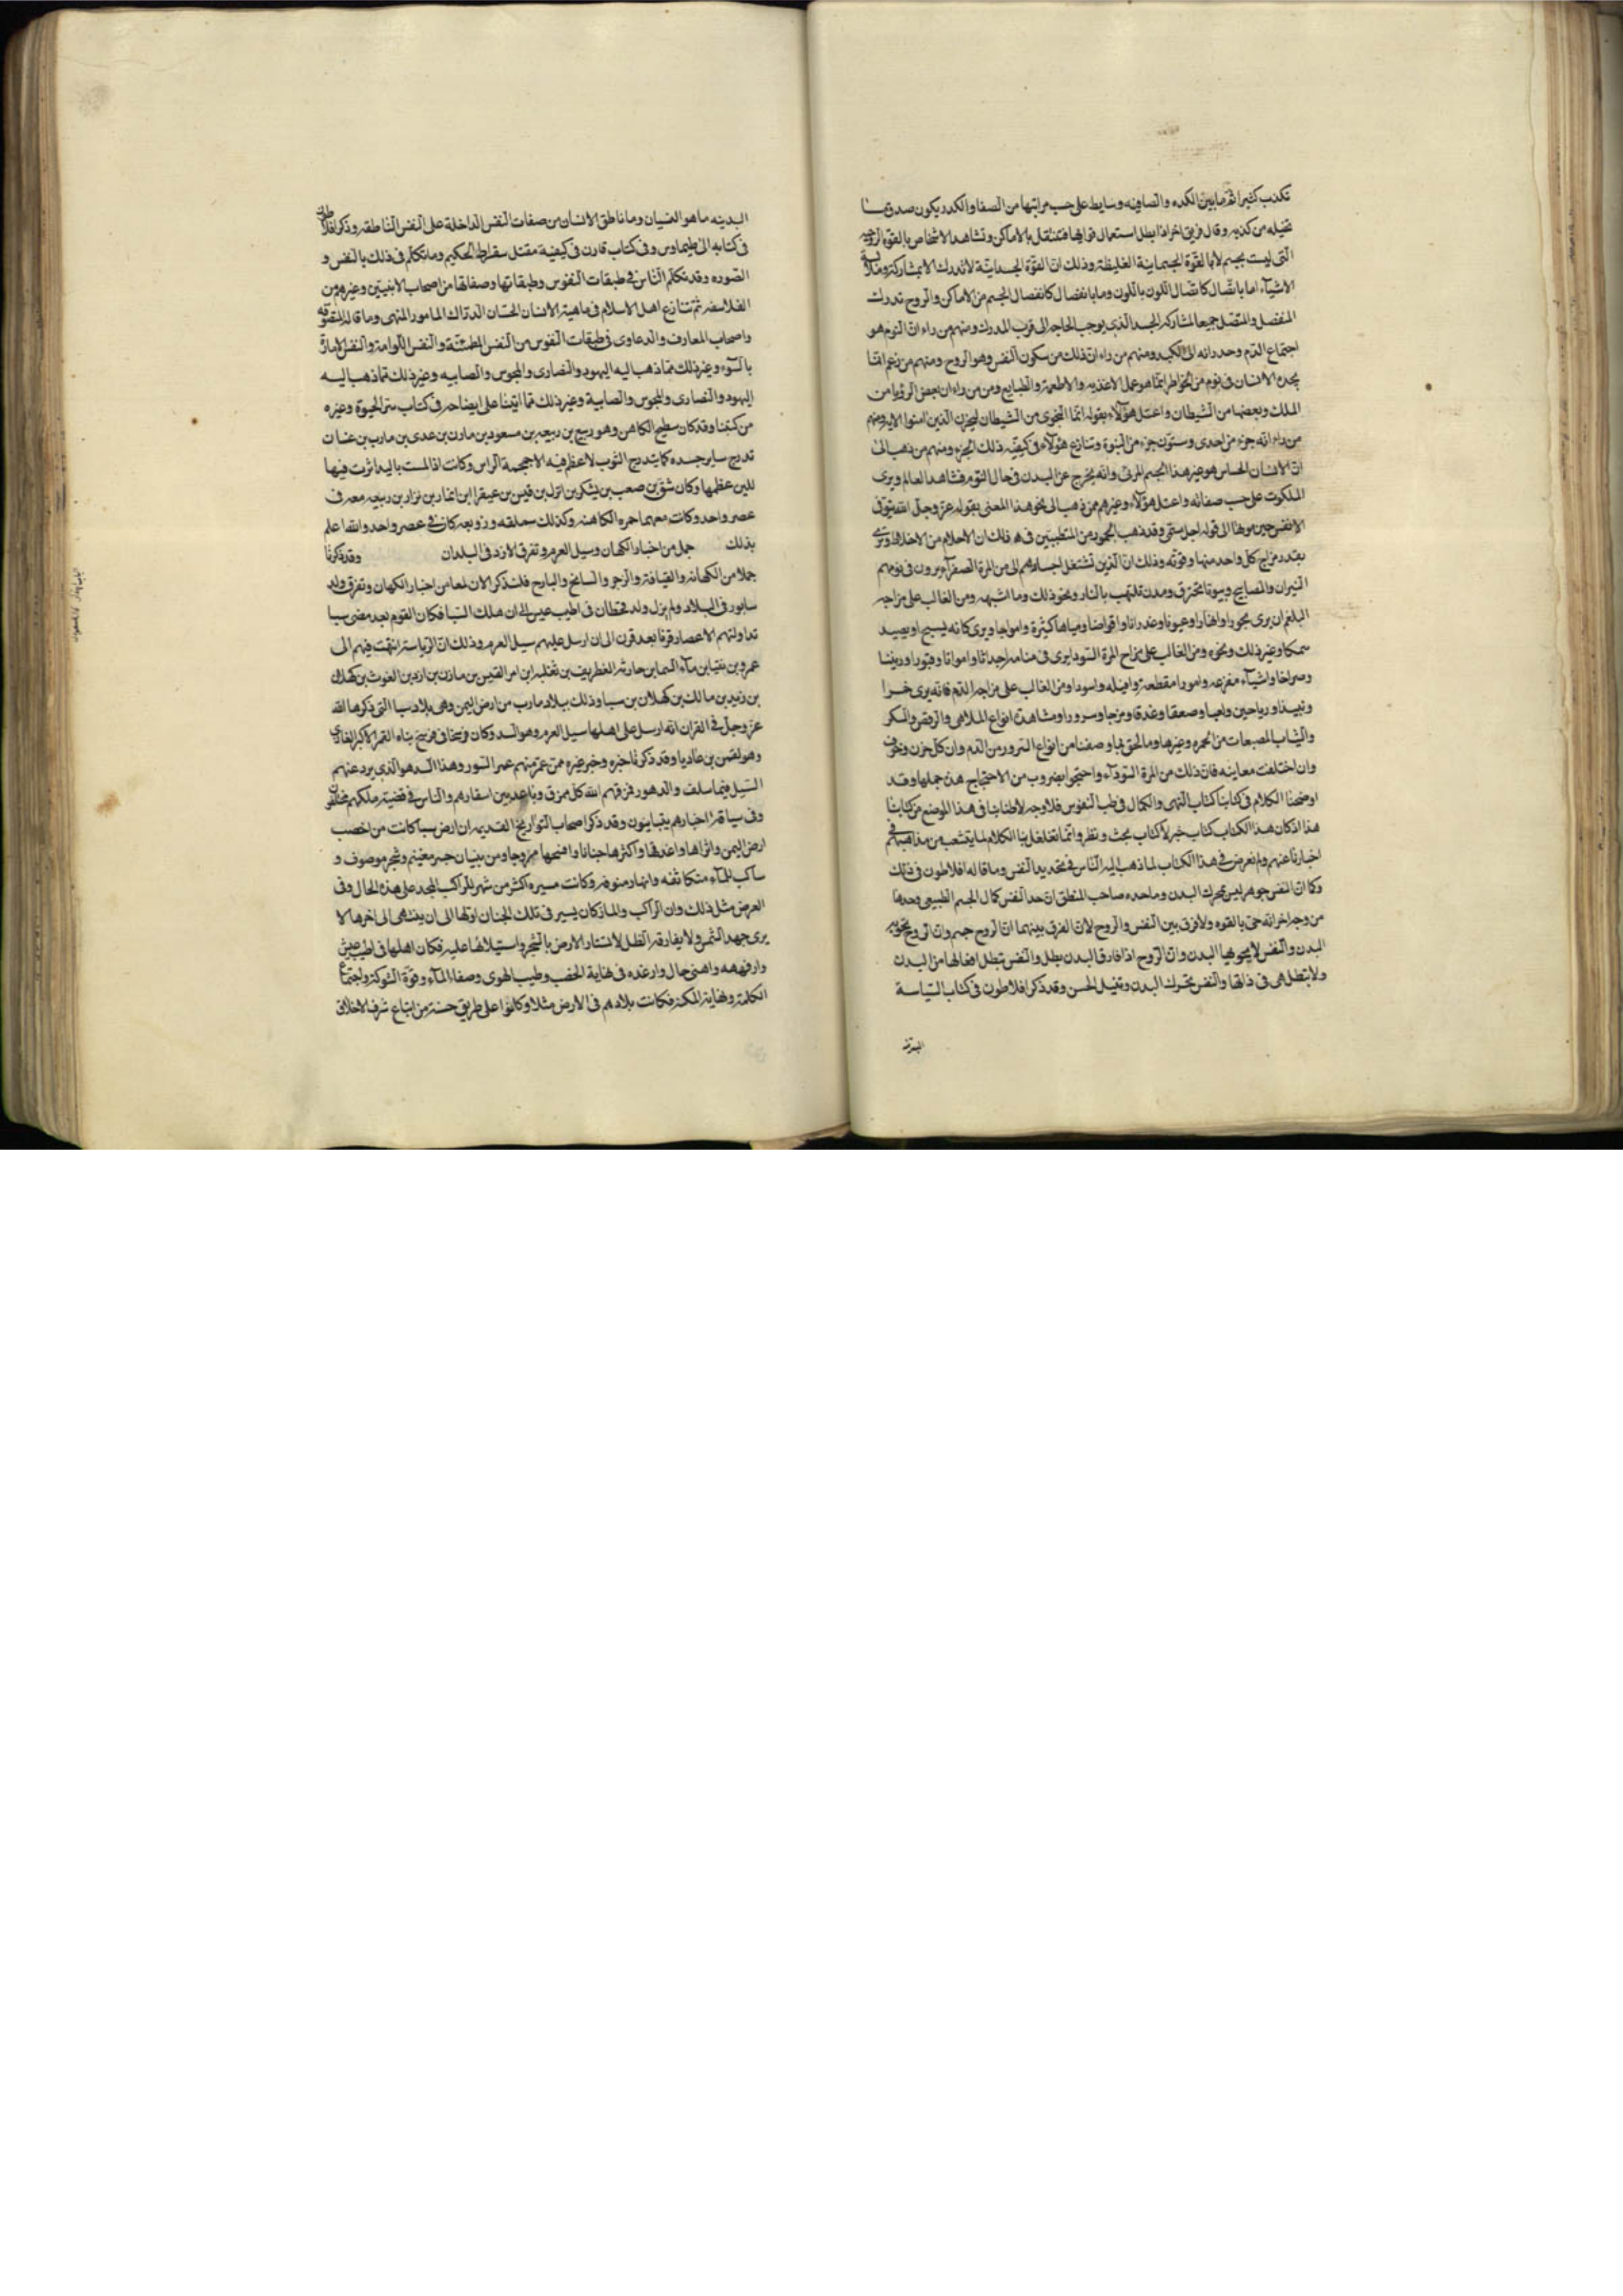 تكذب كثيرا ثم ما بين الكدره والصافيه وسايط على حسب مراتبها من الصفا والكدر يكون صدق ما
تخيله من كذبه وقال فريق اخر اذا بطل استعمال فتنتقل بالاماكن وتشاهد الاشخاص بالقوة الروحية
التى ليست بجسم لا بالقوة الجسمانية الغليظة وذلك ان القوة الجسدانية لا تدرك الا بمشاركة وملاقاة
الاشيآء اما باتصال كاتصال اللون باللون وما بانفصال كانفصال الجسم من الاماكن والروح تدرك
المنفصل والمتصل جميعا لمشاركه الجسد الذى يوجب الحاجه الى قرب المدرك ومنهم من راءا ان النوم هو
اجتماع الدم وجريانه الى الكبد ومنهم من راءا ان ذلك من سكون النفس وهو الروح ومنهم من زعم انما
يجده الانسان فى نوم من الخواطر انما هو عمل الاغذيه والاطعمة والطبايع ومن من راءا ان بعض الرؤيا من
الملك وبعضها من الشيطان واعتل هؤلاء بقوله انما النجوى من الشيطان ليحزن الذين امنوا الايه ومنهم
من راءا انه جزء من احدى وستون جزء من النبوة وتنازع هؤلاء فى كيفيه ذلك الجزء ومنهم من ذهب الى
ان الانسان الحساس هو غير هذا الجسم المرئى وانه يخرج عن البدن فى حال النوم فشاهد العالم ويرى
الملكوت على حسب صفائه واعتل هؤلاء وغيرهم ممن ذهب الى نحو هذا المعنى بقوله عز وجل الله يتوفى
الانفس حين موتها الى قوله اجل مسمى وقد ذهب الجمهور من المتطببين فى ذلك ان الاحلام من الاخلاط وترى
بقدر مزاج كل واحد منها وقوته وذلك ان الذين تشتغل اجسادهم الى من المرة الصفرآء يرون فى نومهم
النيران والمصابيح وبيوتا تحترق ومدن تلتهب بالنار ونحو ذلك وما اشبهه ومن الغالب على مزاجه
البلغم ان يرى بحورا وانهارا وعيونا وغدرانا واقواضا ومياها كثيرة وامواجا ويرى كانه يسبح او يصيد
سمكا وغير ذلك ونحوه ومن الغالب على مزاج المرة السودا يرى فى منامه اجداثا وامواتا وقبورا
وصراخا واشيآء مفزعه وامورا مقطعة وافيله واسودا ومن الغالب على مزاجه الدم فانه يرى خمرا
ونبيذا ورياحين ولعبا وصعقا وعذقا ومزجا وسرورا ومشاهدة انواع الملاهى والرقص والسكر
والثياب المصبغات من الحمره وغيرها وما لحق بما وصفنا من انواع السرور من الدم وان كل حزن وخوف
وان اختلفت معاينه فان ذلك من المرة السودآء واحتجوا بضروب من الاحتجاج هذه جملها وقد
اوضحنا الكلام فى كتابنا كتاب النهى والكمال فى طب النفوس فلا وجه لاطنابنا فى هذا الموضع من كتابنا
هذا اذ كان هذا الكتاب كتاب خبر لا كتاب بحث ونظر وانما تغلغل بنا الكلام لما يتشعب من مذاهبهم فى
اخبارنا عنهم ولم نعرض فى هذا الكتاب لما ذهب اليه الناس فى تحديد النفس وما قاله افلاطون فى ذلك
وكان النفس جوهر ليس تحرك البدن وما حده صاحب المنطق ان حد النفس كمال الجسم الطبيعى وحدها
من وجه اخر انه حى بالقوه ولا فرق بين النفس والروح لان الفرق بينهما ان الروح جسم وان الروح يحويه
البدن والنفس لا يحويها البدن وان الروح اذا فارق البدن بطل والنفس تبطل افعالها من البدن
ولا تبطل هى فى ذاتها والنفس تحرك البدن وتنيل الحسن وقد ذكر افلاطون فى كتاب السياسة
المدنيه
البدنيه ما هو النسيان وما ناطق الانسان من صفات النفس الداخلة على النفس الناطقه وذكر افلاطون
فى كتابه الى طيماوس وفى كتاب قارن فى كيفية مقتل سقراط الحكيم وما تكلم فى ذلك بالنفس و
الصوره وقد تكلم الناس فى طبقات النفوس وطبقاتها وصفاتها من اصحاب الاثنين وغيرهم من
الفلاسفه ثم تنازع اهل الاسلام فى ماهية الانسان الحسان الدراك المامور المنهى وما قاله المتصوفه
واصحاب المعارف والدعاوى فى طبقات النفوس من النفس المطمئنة والنفس اللوامة والنفس الامارة
بالسوء وغير ذلك مما ذهب اليه اليهود والنصارى والمجوس والصابيه وغير ذلك مما ذهب اليه
اليهود والنصارى والمجوس والصابية وغير ذلك مما اتينا على ايضاحه فى كتاب سر الحيوة وغيره
من كتبنا وقد كان سطيح الكاهن وهو ربيع بن ربيعه بن مسعود بن مازن بن عدى بن مارب بن غسان
تدرج ساير جسده كما يتدرج الثوب لا عظم فيه الا جمجمة الراس وكانت اذا لمست باليد اثرت فيها
للين عظمها وكان شق بن صعب بن يشكر بن انزل بن قيس بن عبقر ابن انمار بن نزار بن ربيعه معه فى
عصر واحد وكانت معهما حمره الكاهنه وكذلك سملقه وزوبعه كان فى عصر واحد والله اعلم
بذلك جمل من اخبار الكهان وسيل العرم وتفرق الازد فى البلدان وقد ذكرنا
جملا من الكهانه والقيافة والزجر والسانح والبارح فلنذكر الان لمعا من اخبار الكهان وتفرق ولد
سابور فى البلاد ولم يزل ولد قحطان فى اطيب عيش الى ان هلك السبا فكان القوم بعد مضى سبا
تداولتهم الاعصار قرنا بعد قرن الى ان ارسل عليهم سيل العرم وذلك ان الرياسة انتهت فيهم الى
عمرو بن يقيا بن مآء السما بن حارثه الغطريف بن ثعلبه ابن امر القيس بن مازن بن ازد بن الغوث بن كهلان
بن زيد بن مالك بن كهلان بن سبا وذلك ببلاد مارب من ارض اليمن وهى بلاد سبا التى ذكرها الله
عز وجل فى القران انه ارسل على اهلها سيل العرم وهو السد وكان فرسخا فى فرسخ بناه لقمن الاكبر العادى
وهو لقمن بن عاديا وقد ذكرنا خبره وخبر غيره ممن عمر منهم عمر النسور وهذا السد هو الذى يرد عنهم
السيل فيما سلف والدهور فمزقهم الله كل ممزق وباعد بين اسفارهم والناس فى قضية ملكهم مختلفون
وفى سياقة اخبارهم يتباينون وقد ذكر اصحاب التواريخ القديمه ان ارض سبا كانت من اخصب
ارض اليمن واثراها واغدقها واكثرها جنانا وافسحها مروجا ومن بنيان جسر مغينم وشجر موصوف و
ساكب للمآء متكاثفه وانهار منوعه وكانت مسيره اكثر من شهر للراكب المجد على هذه الحال وفى
العرض مثل ذلك وان الراكب والماركان يسير فى تلك الجنان اولها الى ان ينتهى الى اخرها لا
يرى جهد الشمس ولا يفارقه الظل لاستتار الارض بالشجر واستيلائها عليه فكان اهلها فى اطيب عيش
وارفههه واهنى حال وارغده فى نهاية الخصب وطيب الهوى وصفا المآء وقوة الشوكة واجتماع
الكلمة ونهاية المكنه فكانت بلادهم فى الارض مثلا وكانوا على طريق حسنة من اتباع شرف الاخلاق